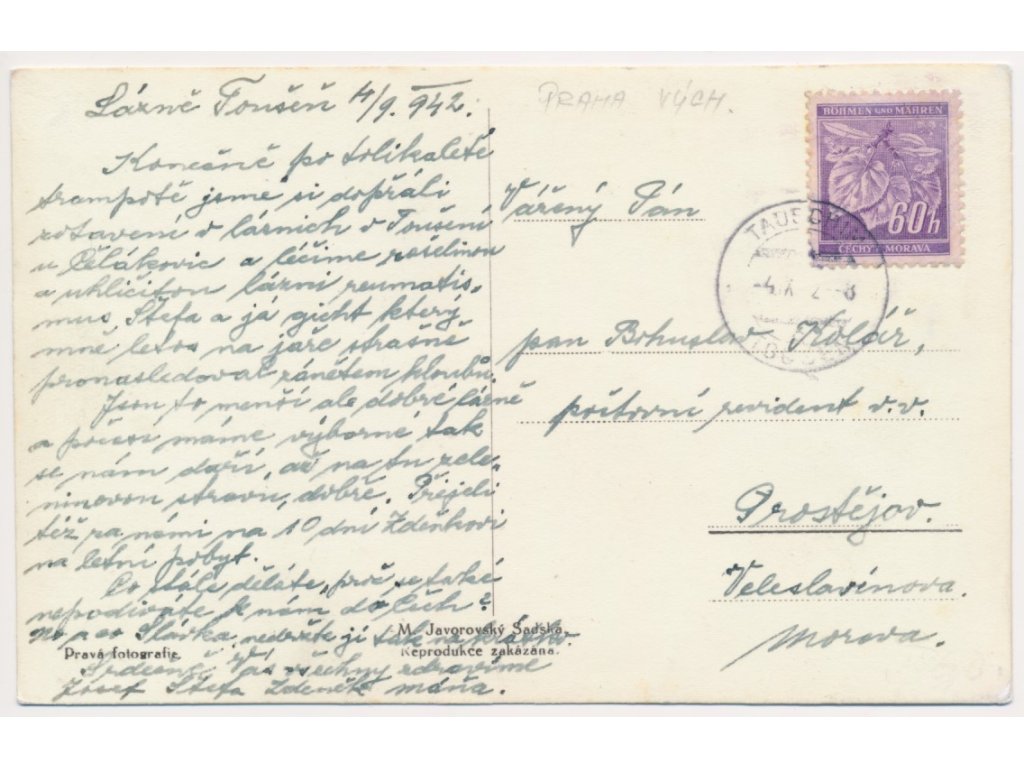 Lázně Toušeň 4/9. 942.
Konečně po tolikaleté
trampotě jsme si dopřáli
zotavení v lázních v Toušeni
u Čelákovic a léčíme rašelinou
a uhličitou lázní reumatis-
mus, Štefa a já gicht který
mně letos na jaře strašně
pronásledoval zánětem kloubů.
Jsou to menší ale dobré lázně
a počasí máme výborné tak
se nám daří, až na tu zele-
ninovou stravu, dobře. Přejeli
též za námi na 10 dní Zdeňkovi
na letní pobyt.
Co stále děláte, proč se také
nepodíváte k nám do Čech?
No a co Slávka, nedržte ji tak na krátko.
Srdečně Vás všechny zdravíme
Josef Štefa Zdeněk Máňa.
Pravá fotografie.
M. Javorovský Sadská.
Reprodukce zakázána.
PRAHA VÝCH.
BÖHMEN UND MÄHREN
60h
ČECHY A MORAVA
TAUSCHIM
-4.IX. 2-8
Vážený Pán
pan Bohuslav Kolář,
poštovní revident v.v.
Prostějov.
Veleslavínova.
Morava.